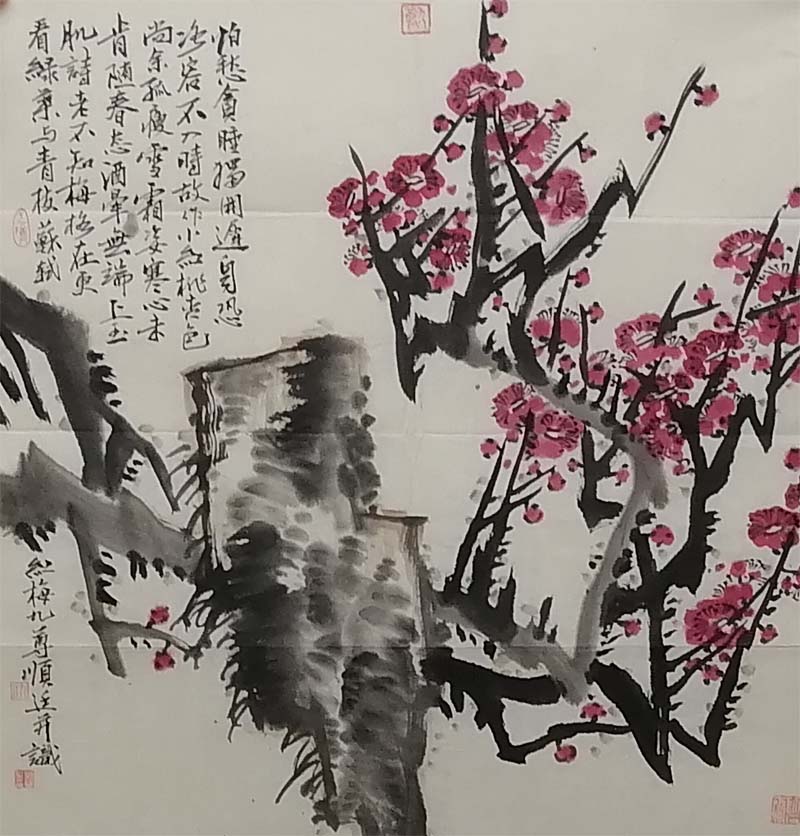 怕愁貪睡獨開遲自恐
冰容不入時故作小紅桃杏色
尚余孤瘦雪霜姿寒心未
肯随春态酒暈無端上玉
肌詩老不知梅格在更
看緑葉与青枝蘇軾
紅梅九尊順廷并識